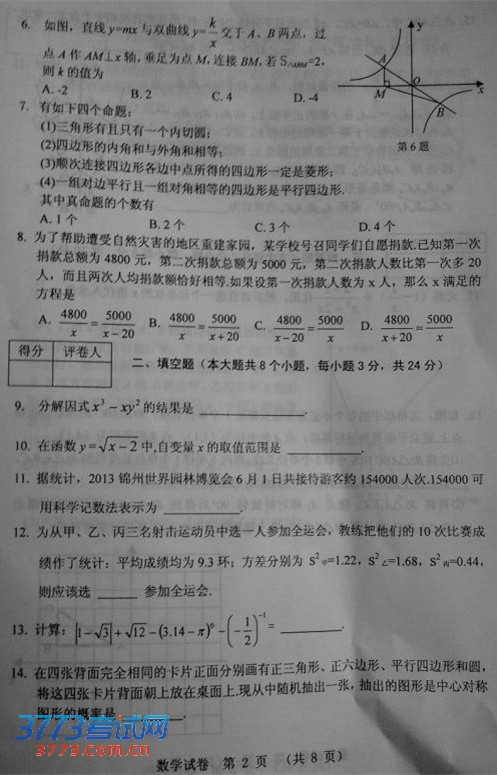 6. 如图，直线y=mx与双曲线y=k/x交于A、B两点，过
点A作AM⊥x轴，垂足为点M，连接BM，若S△ABM=2，
则k的值为
A. -2 B. 2 C. 4 D. -4
y
A
M
O
x
B
第6题
7. 有如下四个命题：
(1)三角形有且只有一个内切圆；
(2)四边形的内角和与外角和相等；
(3)顺次连接四边形各边中点所得的四边形一定是菱形；
(4)一组对边平行且一组对角相等的四边形是平行四边形.
其中真命题的个数有
A. 1个 B. 2个 C. 3个 D. 4个
8. 为了帮助遭受自然灾害的地区重建家园，某学校号召同学们自愿捐款.已知第一次
捐款总额为4800元，第二次捐款总额为5000元，第二次捐款人数比第一次多20
人，而且两次人均捐款额恰好相等.如果设第一次捐款人数为x人，那么x满足的
方程是
A. 4800/x=5000/(x-20) B. 4800/x=5000/(x+20) C. 4800/(x-20)=5000/x D. 4800/(x+20)=5000/x
得分 评卷人
二、填空题（本大题共8个小题，每小题3分，共24分）
9. 分解因式x³-xy²的结果是 ________.
10. 在函数y=√(x-2)中,自变量x的取值范围是 ________.
11. 据统计，2013锦州世界园林博览会6月1日共接待游客约154000人次.154000可
用科学记数法表示为 ________.
12. 为从甲、乙、丙三名射击运动员中选一人参加全运会，教练把他们的10次比赛成
绩作了统计：平均成绩均为9.3环；方差分别为S²甲=1.22，S²乙=1.68，S²丙=0.44，
则应该选 ____ 参加全运会.
13. 计算：|1-√3|+√12-(3.14-π)⁰-(-1/2)⁻¹= ________.
14. 在四张背面完全相同的卡片正面分别画有正三角形、正六边形、平行四边形和圆，
将这四张卡片背面朝上放在桌面上.现从中随机抽出一张，抽出的图形是中心对称
图形的概率是 ________.
3773考试网
3773.com.cn
数学试卷 第2页 （共8页）